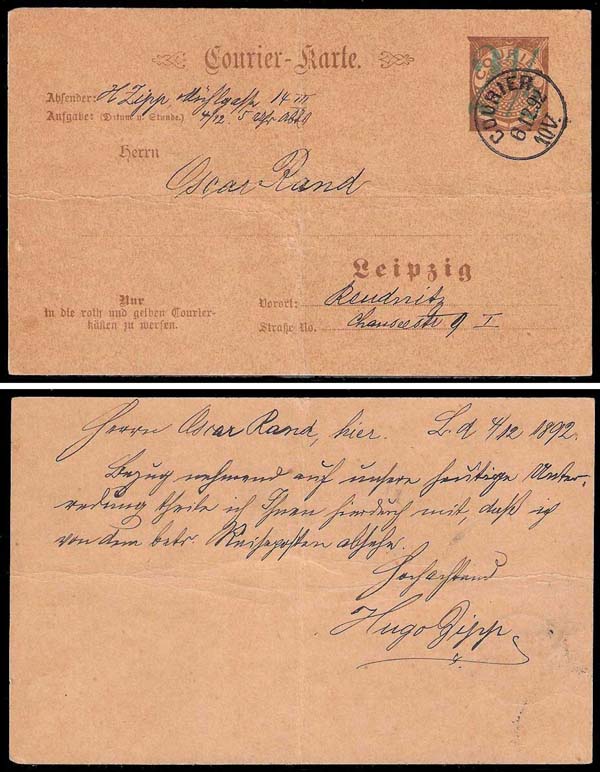 Courier-Karte.
COURIER
COURIER
6.12.92
10V.
Absender: H Zipp Mühlgasse 14 III
Aufgabe: (Datum u. Stunde.) 4/12 5 Uhr
Herrn
Oscar Rand
Leipzig
Nur
in die roth und gelben Courier-
käſten zu werfen.
Vorort: Reudnitz
Straße No. Chausseestr 9 I
Herrn Oscar Rand, hier. L. d 4/12 1892.
Bezug nehmend auf unsere heutige Unter-
redung theile ich Ihnen hierdurch mit, daß ich
von dem betr. Reiseposten absehe.
Hochachtend
Hugo Zipp